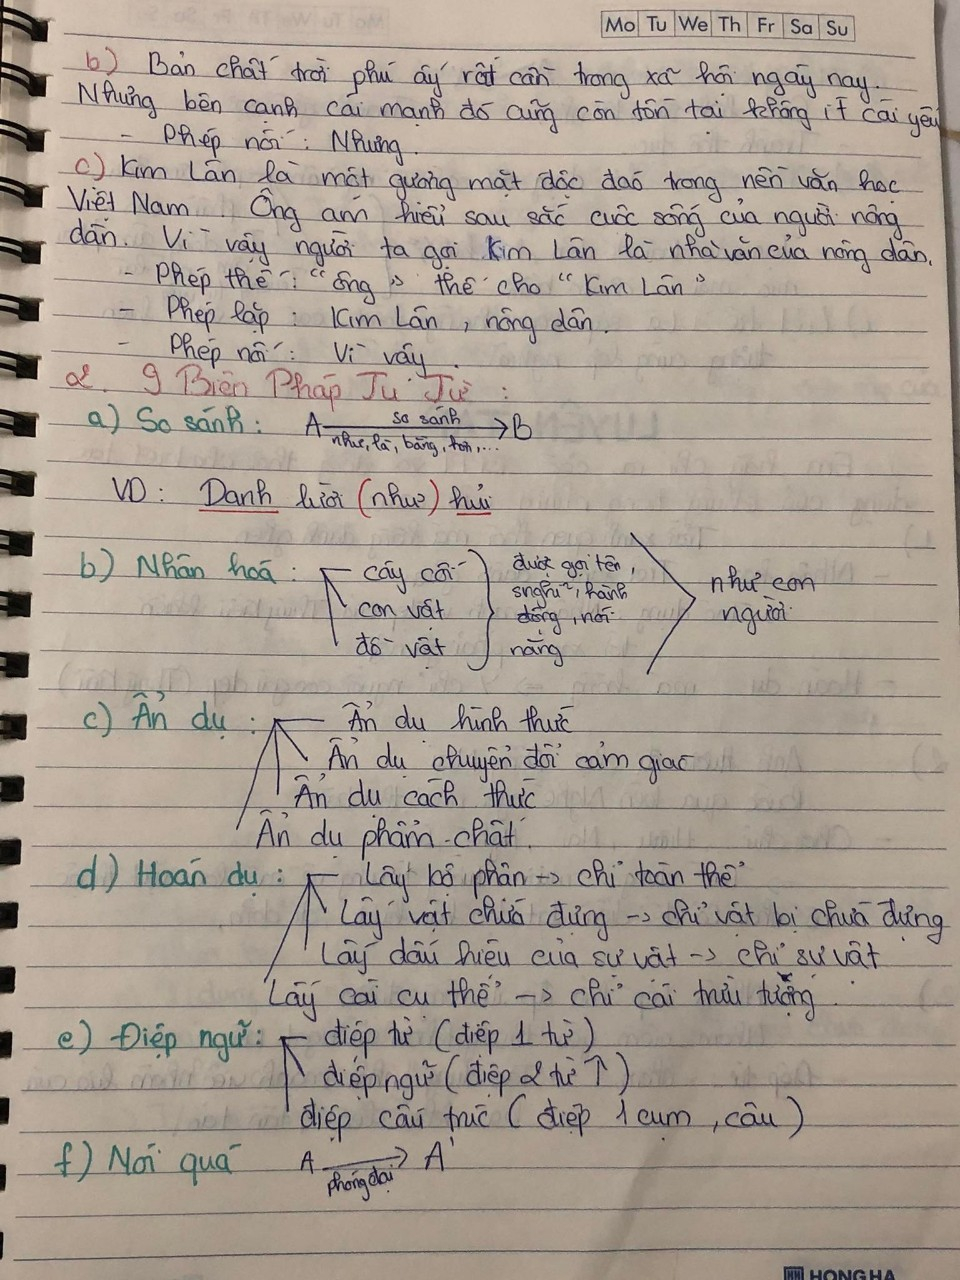 Mo Tu We Th Fr Sa Su
b) Bản chất trời phú ấy rất cần trong xã hội ngày nay.
Nhưng bên cạnh cái mạnh đó cũng còn tồn tại không ít cái yếu
- Phép nối : Nhưng.
c) Kim Lân là một gương mặt độc đáo trong nền văn học
Việt Nam. Ông am hiểu sau sắc cuộc sống của người nông
dân. Vì vậy người ta gọi Kim Lân là nhà văn của nông dân.
- Phép thế : "ông" thế cho "Kim Lân"
- Phép lặp : Kim Lân, nông dân.
- Phép nối : Vì vậy.
2. 9 Biện Pháp Tu Từ :
a) So sánh : A so sánh → B
như, là, bằng, hơn,...
VD : Danh lười (như) hủi
b) Nhân hoá : cây cối
con vật
đồ vật
được gọi tên,
snghĩ, hành
động, nói
năng
như con
người
c) Ẩn dụ : Ẩn dụ hình thức
Ẩn dụ chuyển đổi cảm giác
Ẩn dụ cách thức
Ẩn dụ phẩm chất.
d) Hoán dụ : Lấy bộ phận → chỉ toàn thể
Lấy vật chứa đựng → chỉ vật bị chứa đựng
Lấy dấu hiệu của sự vật → chỉ sự vật
Lấy cái cụ thể → chỉ cái trừu tượng.
e) Điệp ngữ : điệp từ (điệp 1 từ)
điệp ngữ (điệp 2 từ ↑)
điệp cấu trúc (điệp 1 cụm, câu)
f) Nói quá A → A'
phóng đại
HONG HA